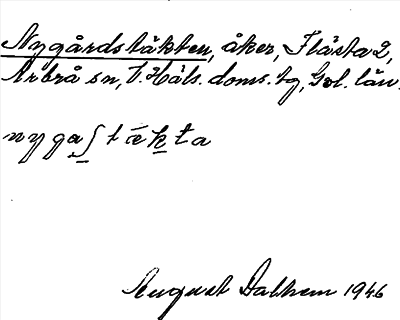 Nygårdstäkten, åker, Flästa 2,
Arbrå sn, V. Häls. doms. tg, Gvl. län.
nyga ʃ tækta
August Dalhem 1946